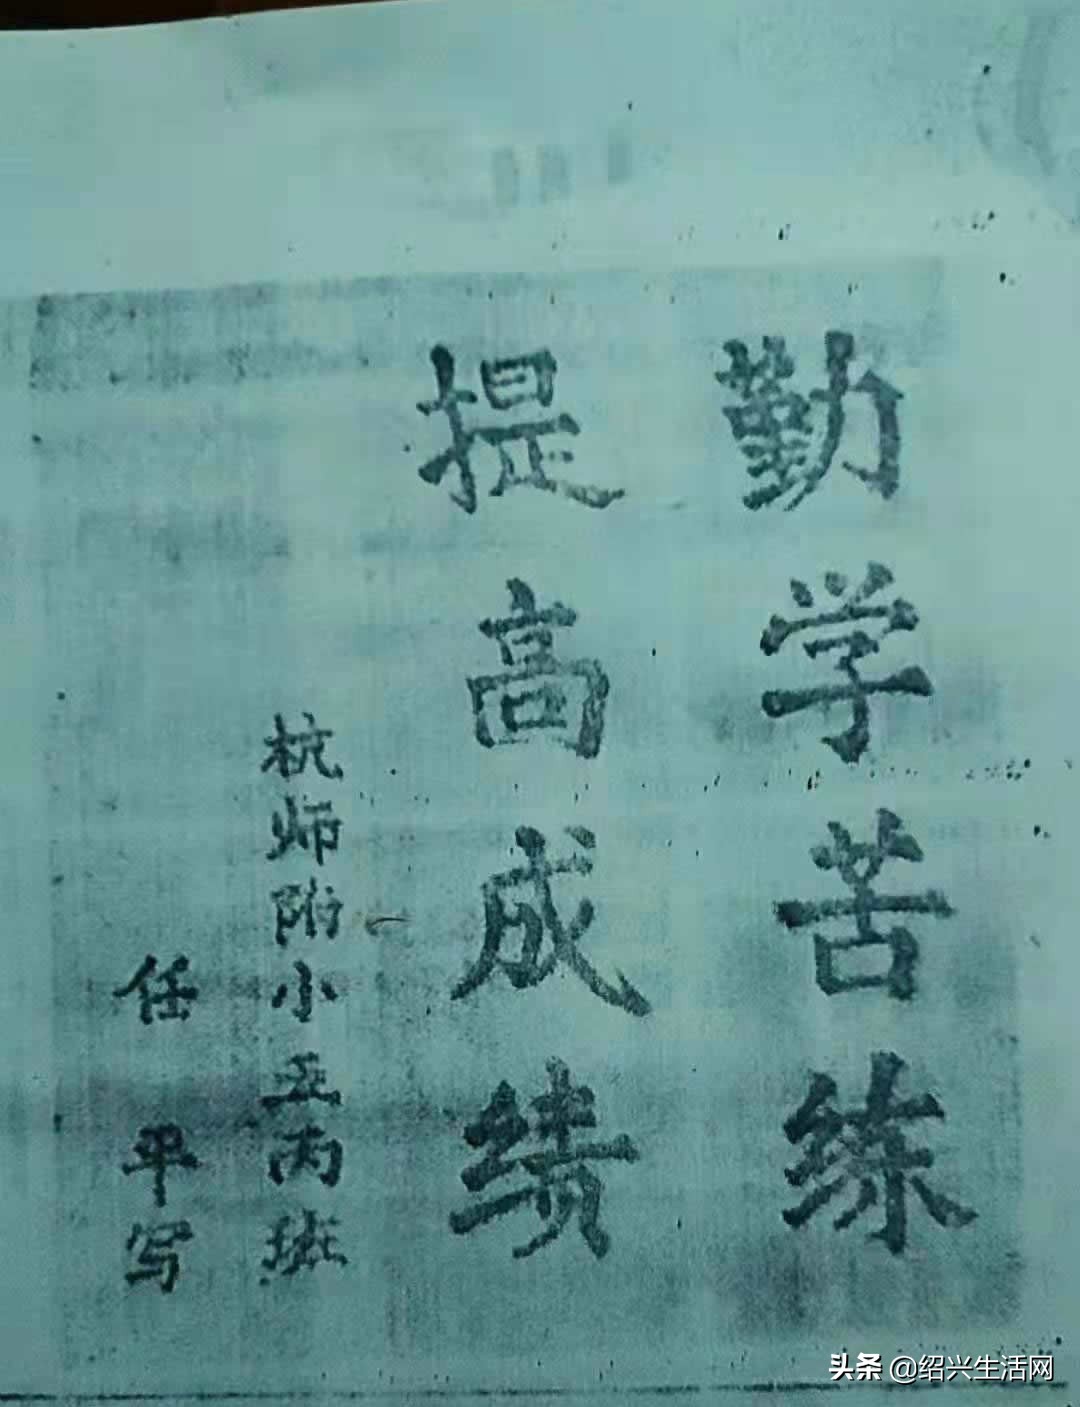 勤学苦练
提高成绩
杭师附小五丙班
任平写
头条 @绍兴生活网